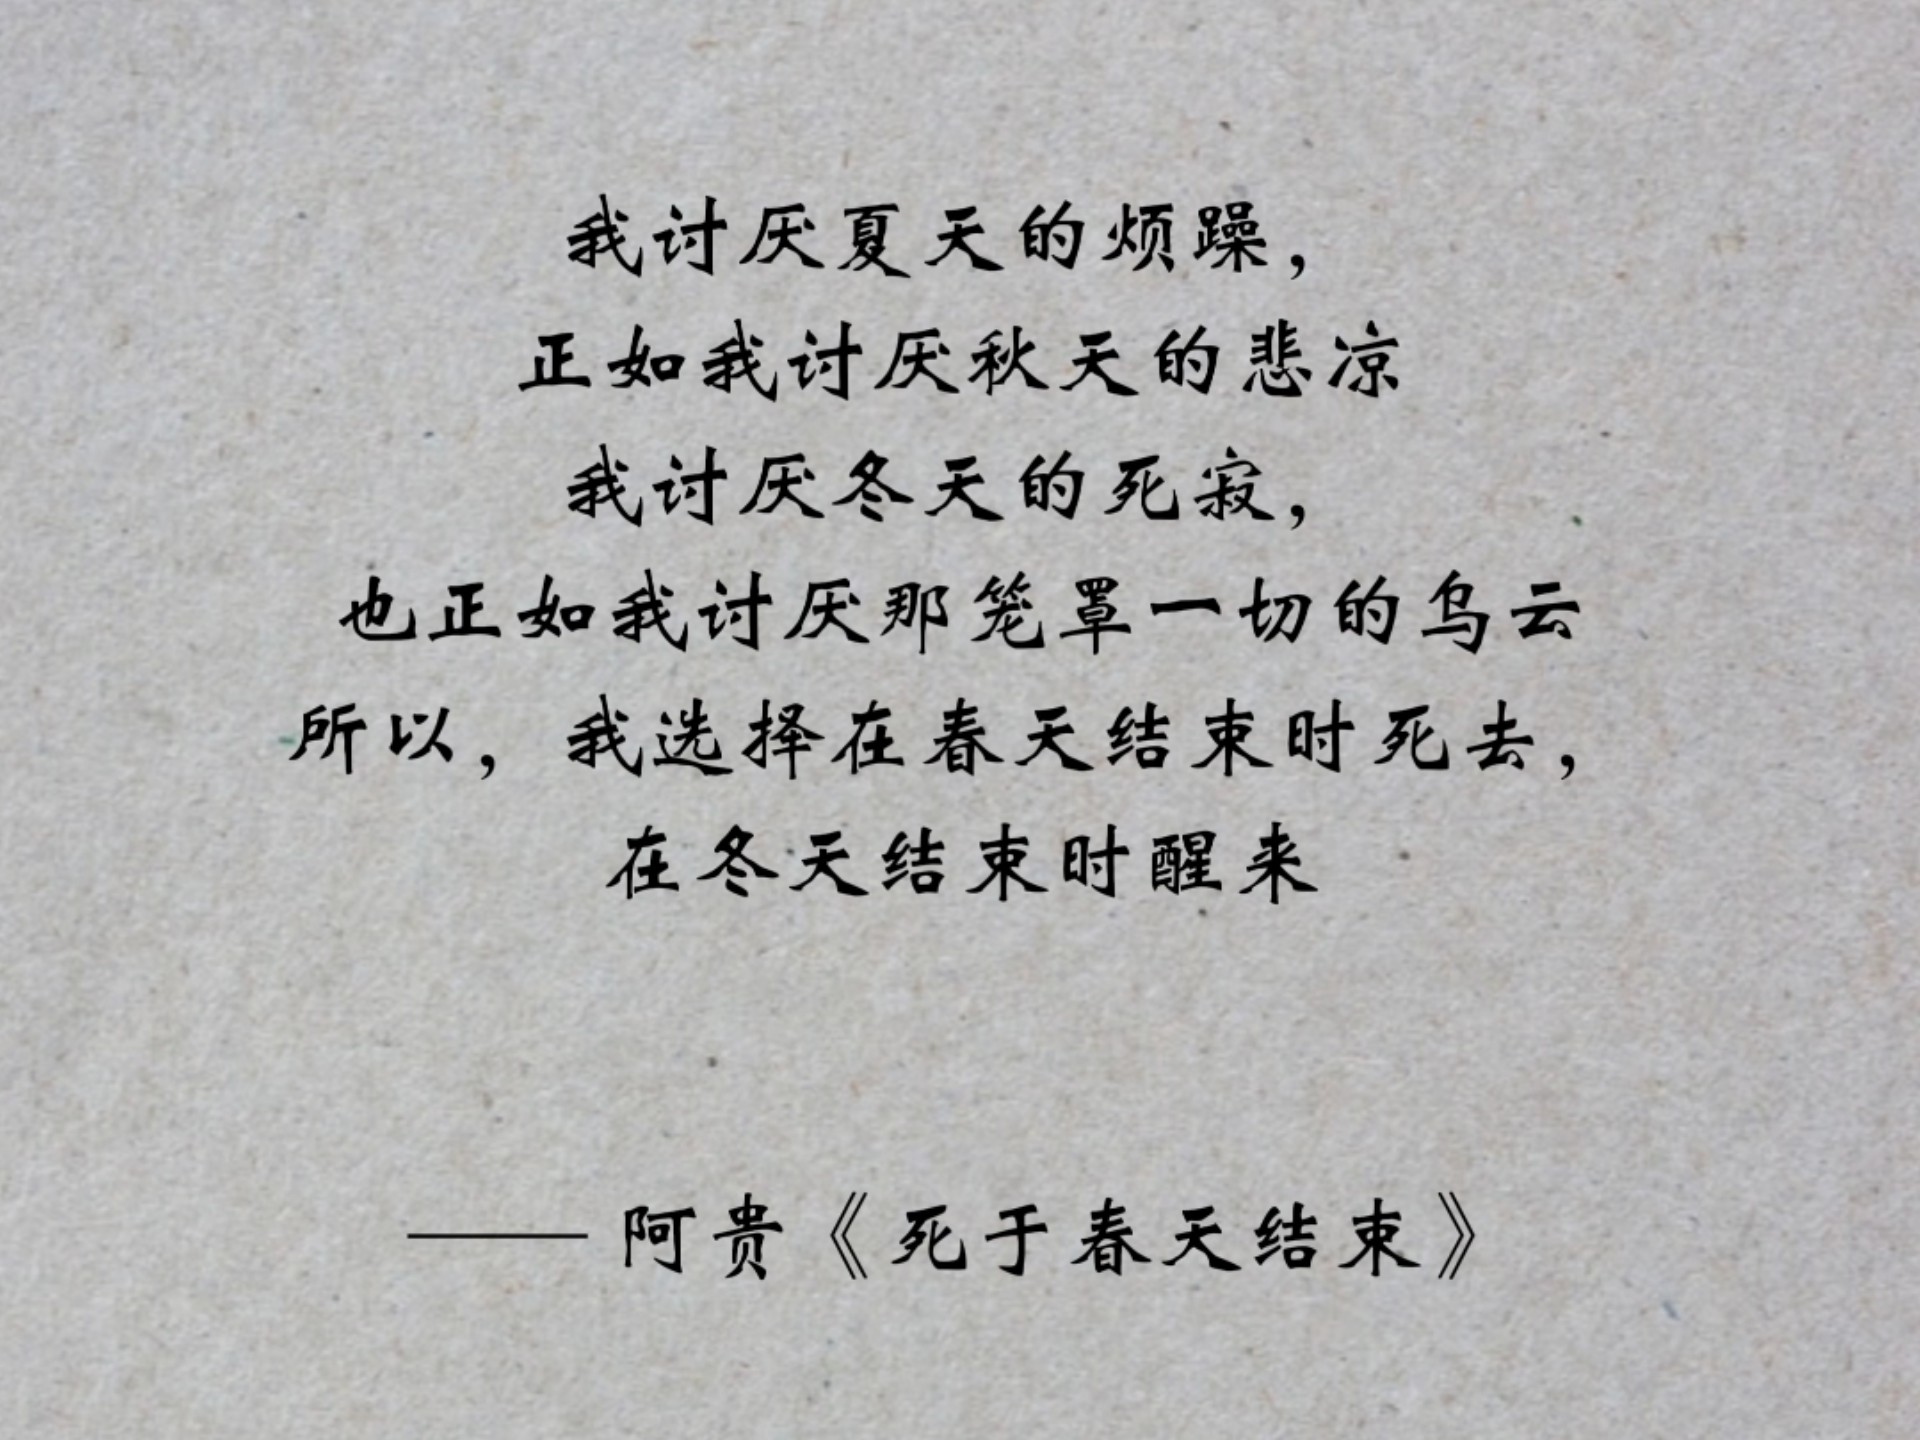 我讨厌夏天的烦躁，
正如我讨厌秋天的悲凉
我讨厌冬天的死寂，
也正如我讨厌那笼罩一切的乌云
所以，我选择在春天结束时死去，
在冬天结束时醒来
——阿贵《死于春天结束》